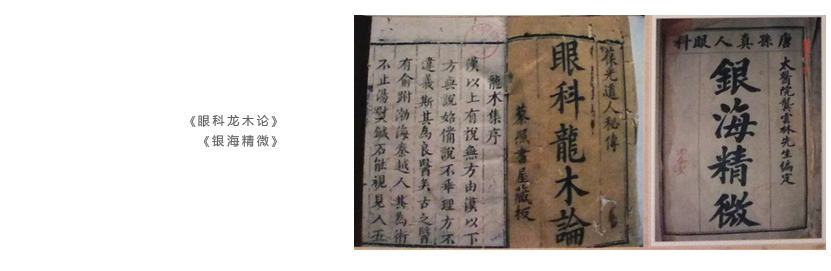 《眼科龙木论》
《银海精微》
葆光道人秘傳
眼科龍木論
藜照書屋藏板
龍木集序
漢以上有說無方由漢以下
方與說始備說不乖理方不
違義斯其為良醫矣古之醫
有俞跗渤海秦越人其為術
不止湯熨鍼石能視見人五
唐孫真人眼科
太醫院龔雲林先生編定
銀海精微